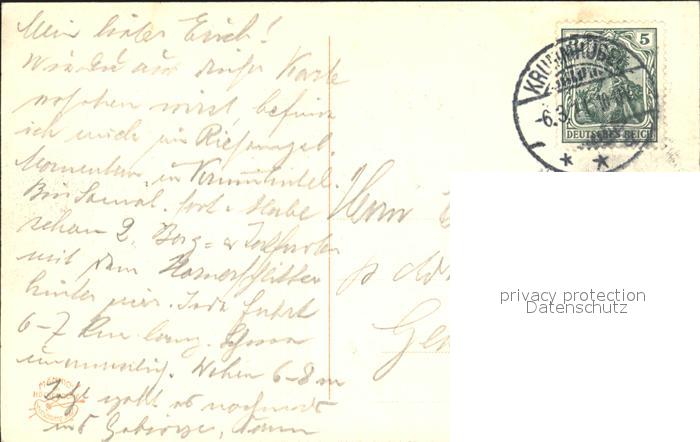 Mein lieber Erich!
Wie Du aus dieser Karte
ersehen wirst, befinde
ich mich im Riesengeb.
Momentan in Krummhübel.
Bin Sonnab. fort u. habe
schon 2 Berg= u. Talfahrten
mit dem Hörnerschlitten
hinter mir. Jede Fahrt
6-7 Km lang. Schnee
6-8 m
Jetzt geht es nochmals
ins Gebirge, dann
Herrn
KRUMMHÜBEL
-6.3.
5
DEUTSCHES REICH
privacy protection
Datenschutz